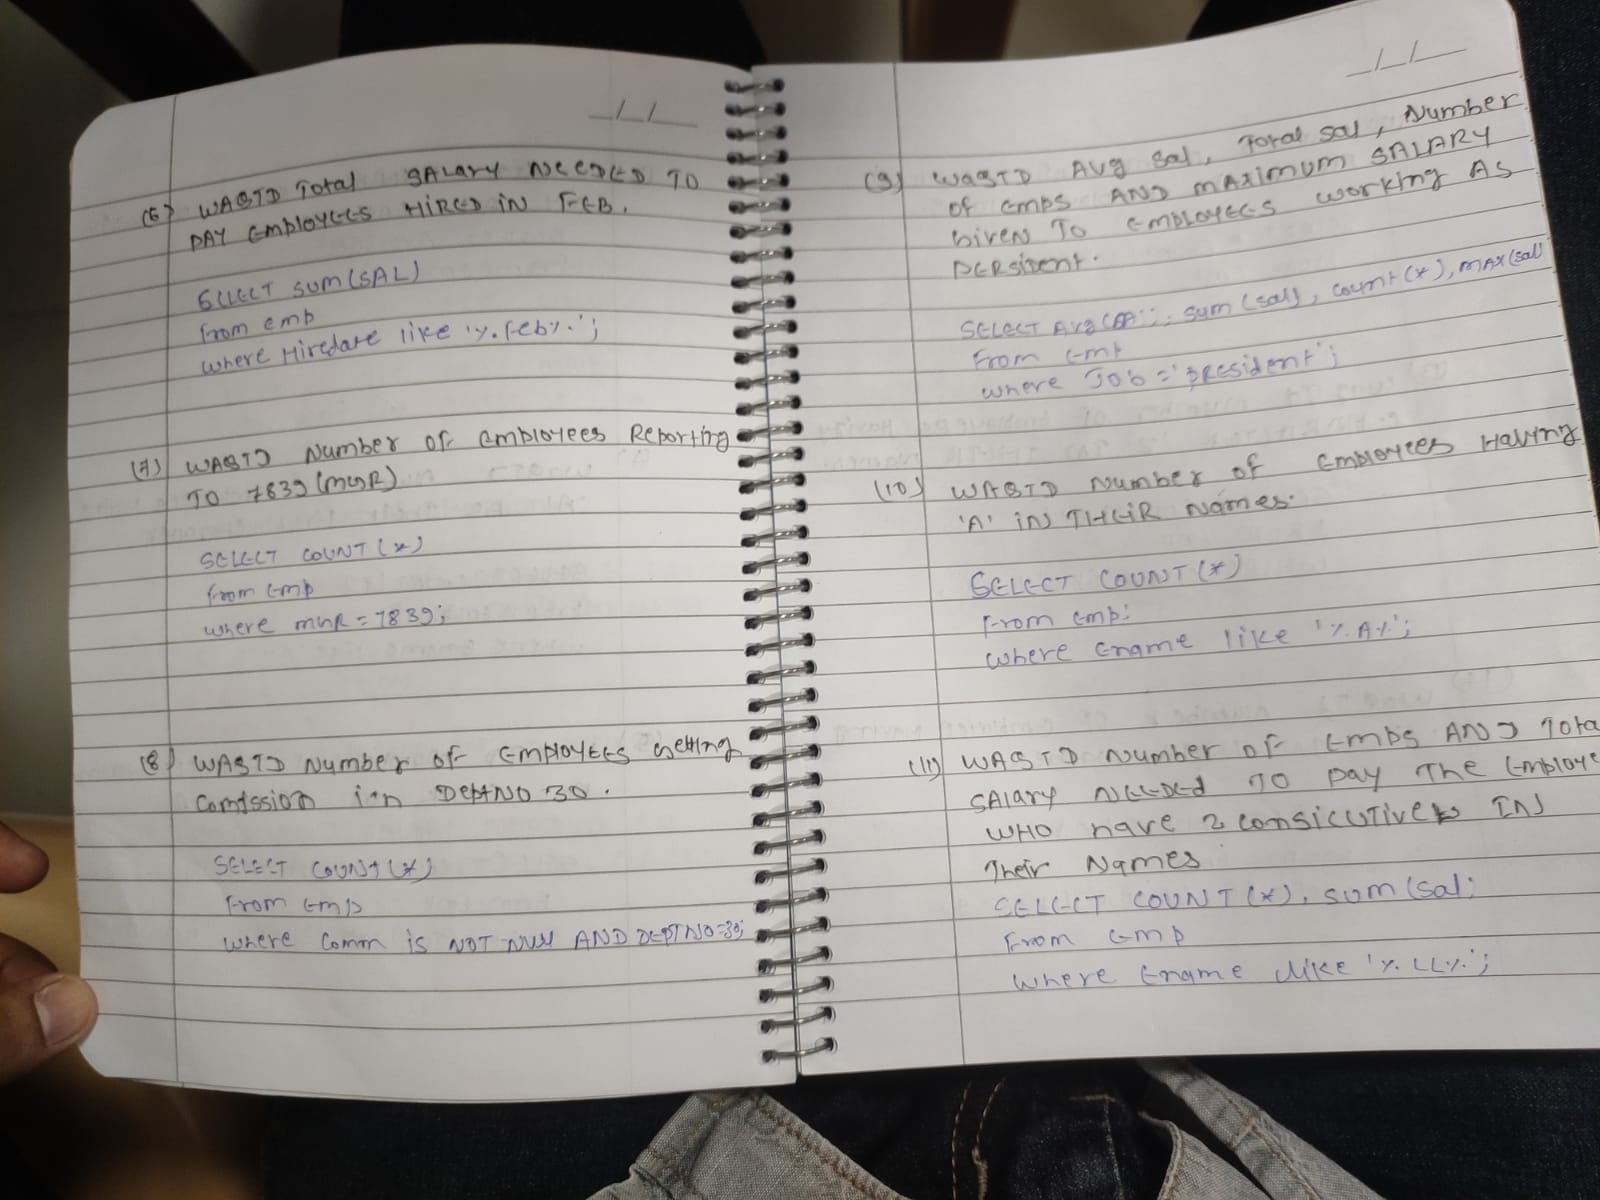 _/_/_
(6) WAQTD Total SALARY NEEDED TO
PAY EMPLOYEES HIRED IN FEB.
SELECT SUM(SAL)
From emp
where Hiredate like '%Feb%';
(7) WAQTD Number OF EMPLOYEES Reporting
TO 7839 (MGR)
SELECT COUNT(*)
From Emp
where MGR = 7839;
(8) WAQTD Number OF EMPLOYEES Getting
Comission in DeptNO 30.
SELECT COUNT(*)
From Emp
where Comm is NOT NULL AND DEPTNO=30;
_/_/_
(9) WAQTD AVG Sal, Total sal, Number
of emps AND MAXimum SALARY
Given To EMPLOYEES working AS
PERSIDENT.
SELECT Avg(SAL), sum(sal), count(*), MAX(sal)
From Emp
where Job = 'president';
(10) WAQTD Number of EMPLOYEES Having
'A' IN THEIR Names.
SELECT COUNT(*)
From Emp
where Ename like '%A%';
(11) WAQTD Number OF EMPS AND Tota
SAlary NEEDED TO pay The Employe
WHO have 2 consicutive LS IN
Their Names
SELECT COUNT(*), SUM(Sal)
From Emp
where Ename like '%LL%';